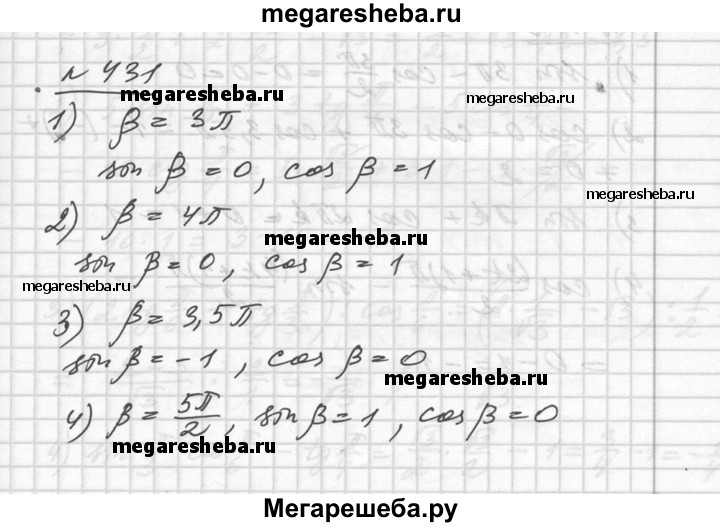 megaresheba.ru
N 431
megaresheba.ru
megaresheba.ru
1) β = 3π
sin β = 0, cos β = 1
megaresheba.ru
2) β = 4π
megaresheba.ru
sin β = 0, cos β = 1
megaresheba.ru
3) β = 3,5π
sin β = -1, cos β = 0
megaresheba.ru
4) β = 5π/2, sin β = 1, cos β = 0
megaresheba.ru
Мегарешеба.ру